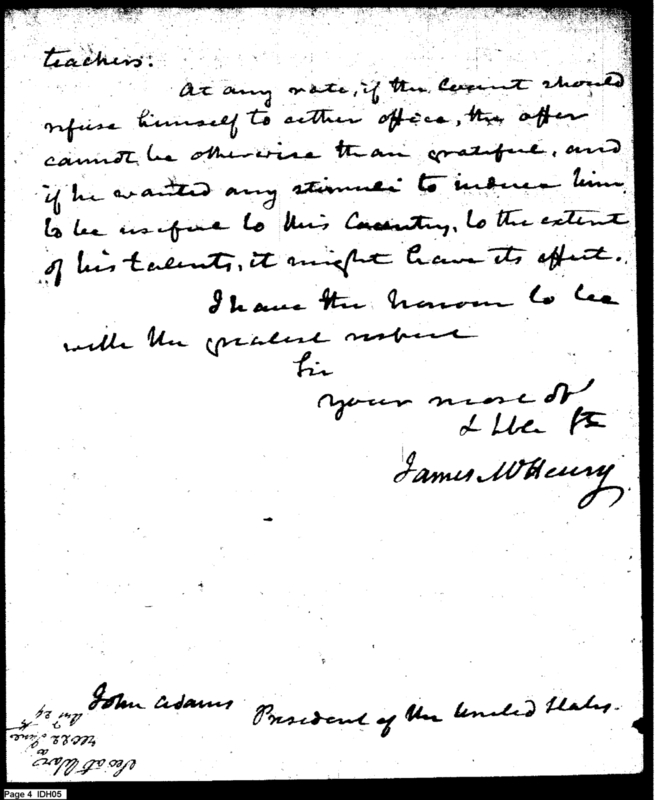 teachers.
At any rate, if the Count should
refuse himself to either office, the offer
cannot be otherwise than grateful, and
if he wanted any stimuli to induce him
to be useful to this Country, to the extent
of his talents, it might have its effect.
I have the honour to be
with the greatest respect
Sir
your most obt
& hble
James McHenry
John Adams
President of the United States.
Sec at War
Page 4 IDH05